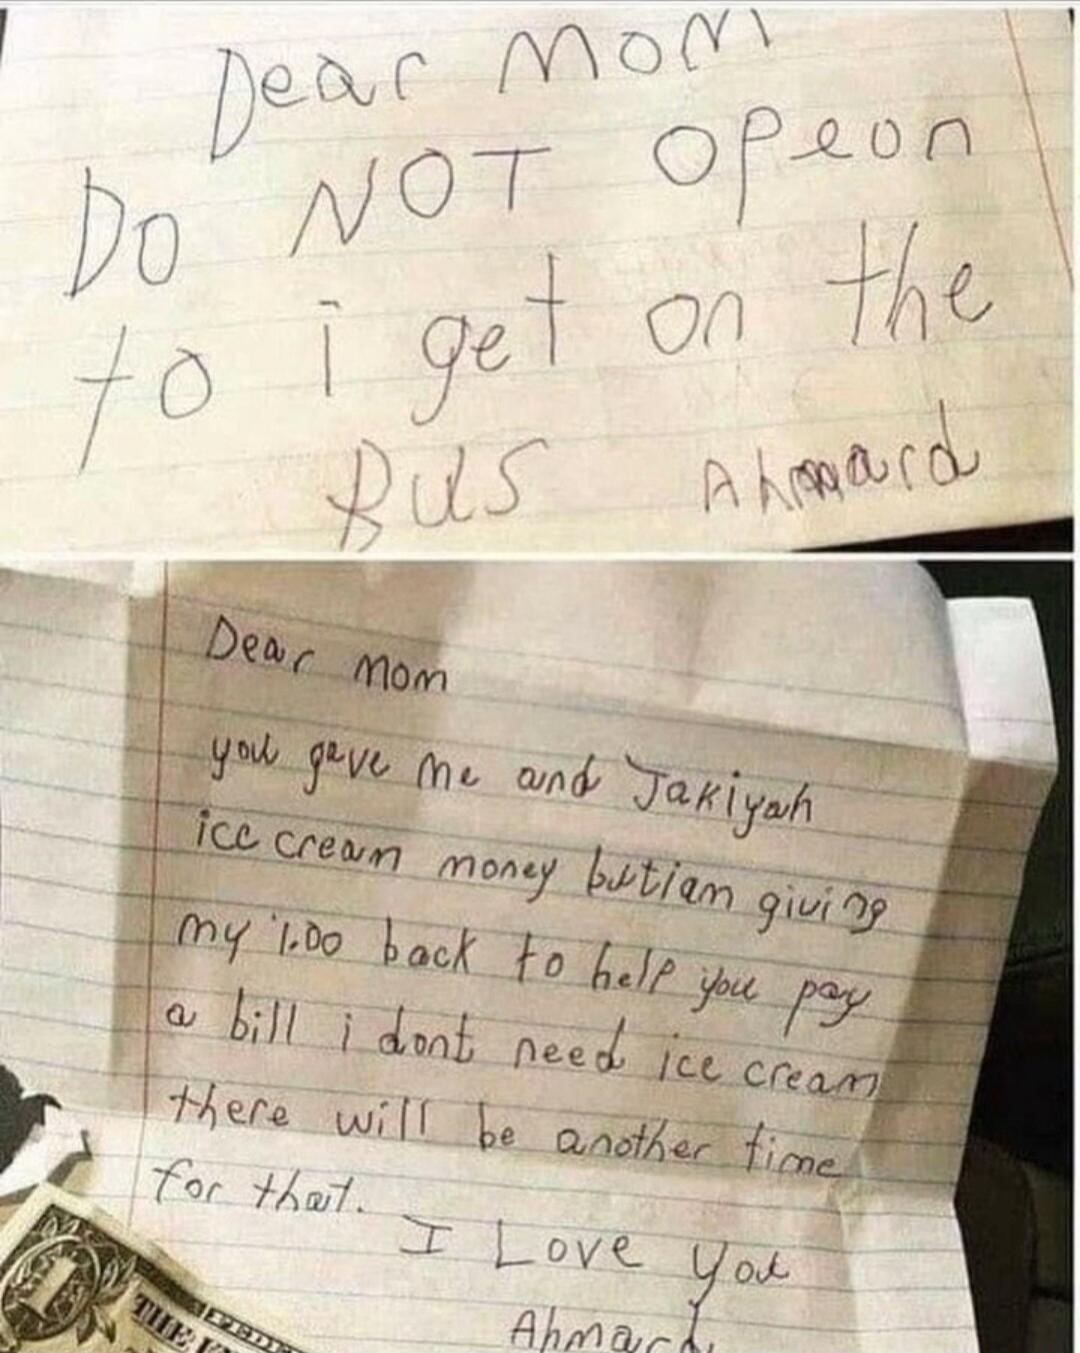 Dear Mom
Do NOT opeon
to i get on the
Bus Ahmard
Dear mom
you gave me and Jakiyah
ice cream money but iam giving
my 1.00 back to help you pay
a bill i dont need ice cream
there will be another time
for that.
I Love you
Ahmard
1
THE